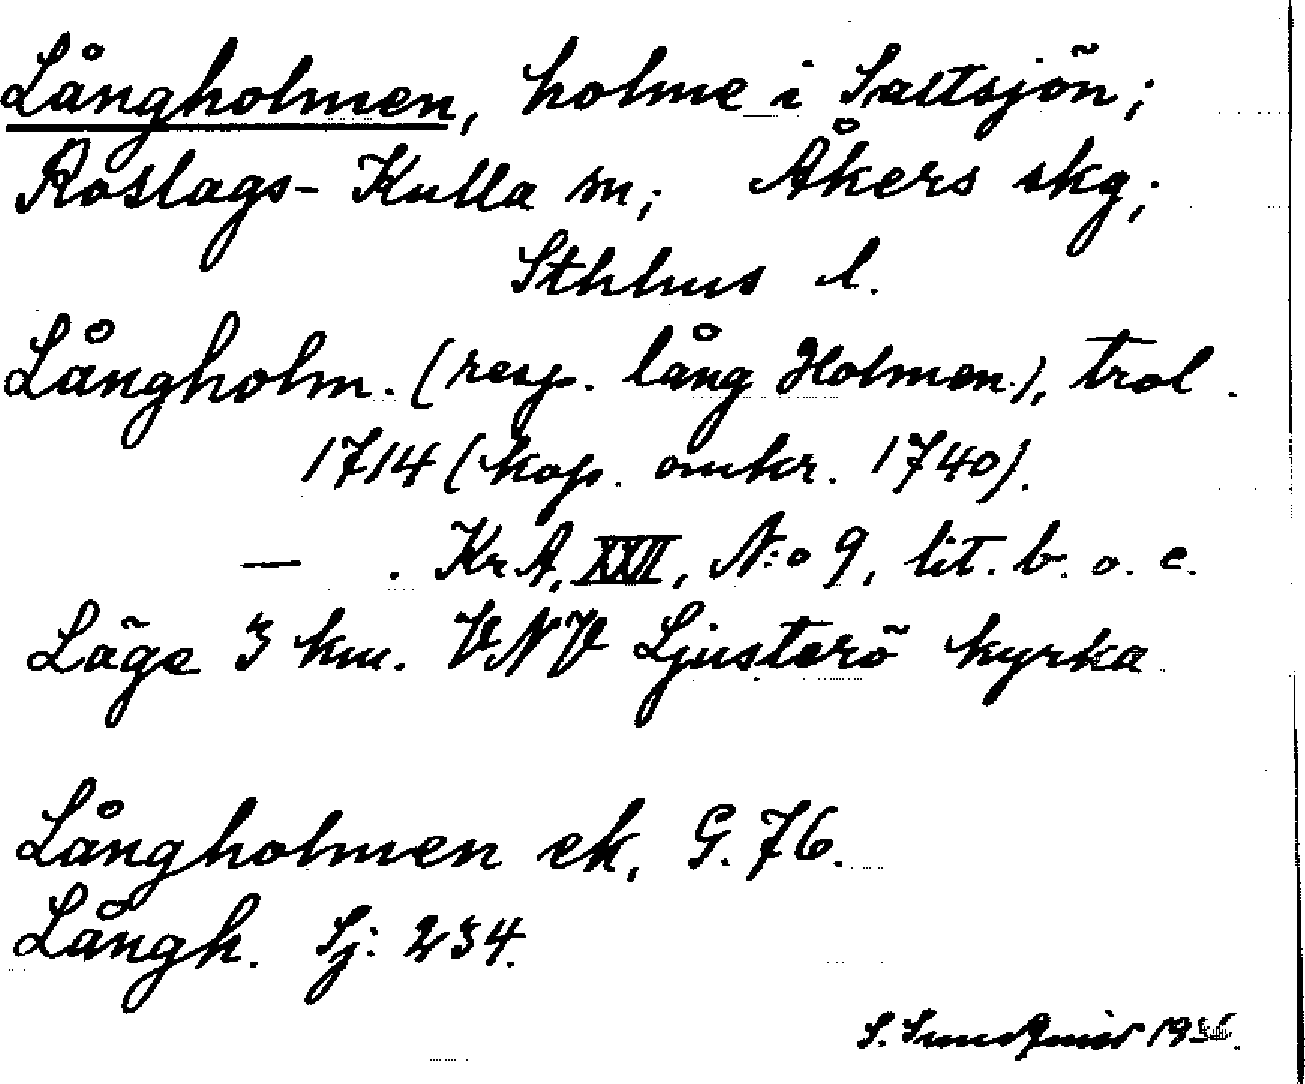 Långholmen, holme i Saltsjön;
Roslags-Kulla sn; Åkers skg;
Sthlms l.
Långholm. (resp. lång Holmen.), trol.
1714 (kop. omkr. 1740).
— . KrA, XXII, N:o 9, lit. b. o. c.
Läge 3 km. VNV Ljusterö kyrka
Långholmen ek, G. 76.
Långh. Sj: 234.
S. Sundqvist